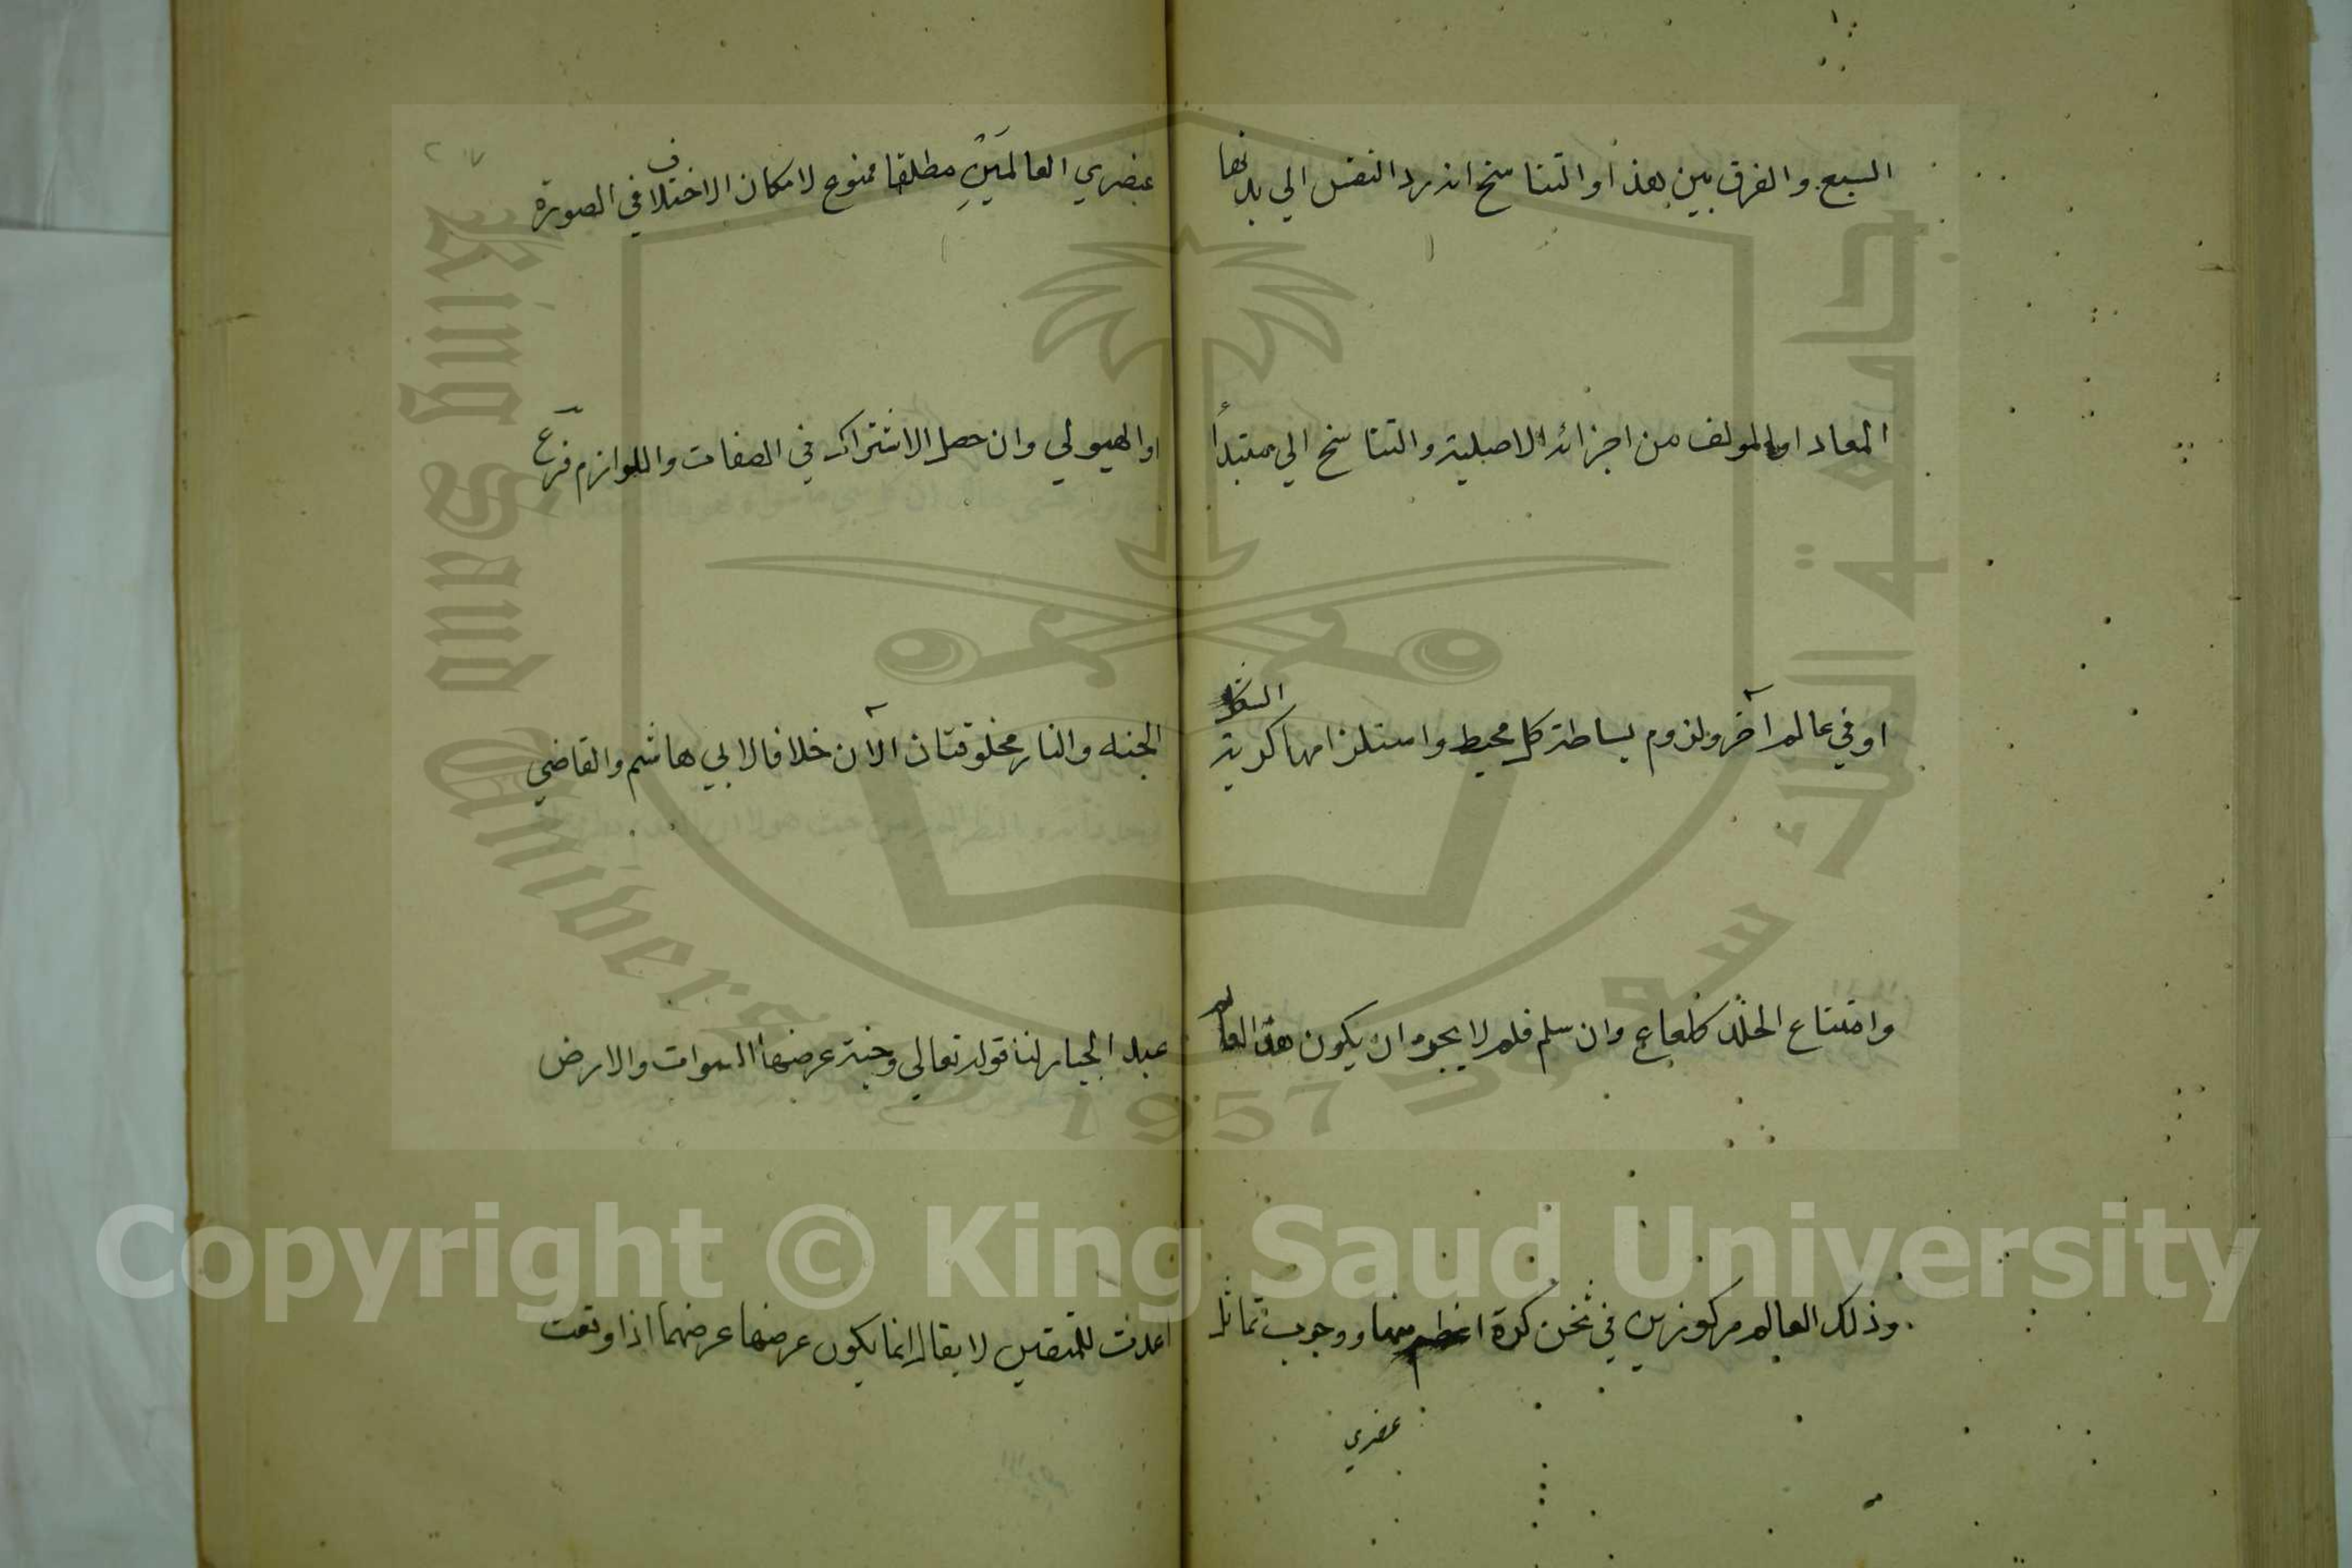 السبع والفرق بين هذا والتناسخ انه رد النفس الي بدنها
المعاد او المولف من اجزائه الاصلية والتناسخ الي مبتدأ
او في عالم آخر ولزوم بساطة كل محيط واستلزامها كرية الشكل
وامتناع الخلاء كلها ع وان سلم فلم لا يجوز ان يكون هذا العالم
وذلك العالم مركوزين في ثخن كرة اعظم منهما ووجوب تماثل
عنصري
عنصري العالمَيْنِ مطلقا ممنوع لامكان الاختلاف في الصورة
او الهيولي وان حصل الاشتراك في الصفات واللوازم فرع
الجنه والنار مخلوقتان الآن خلافا لابي هاشم والقاضي
عبد الجبار لنا قوله تعالي وجنة عرضها السموات والارض
اعدت للمتقين لا يقال انما يكون عرضها عرضهما اذا وقعت
Copyright © King Saud University
King Saud University
جامعة الملك سعود
1957